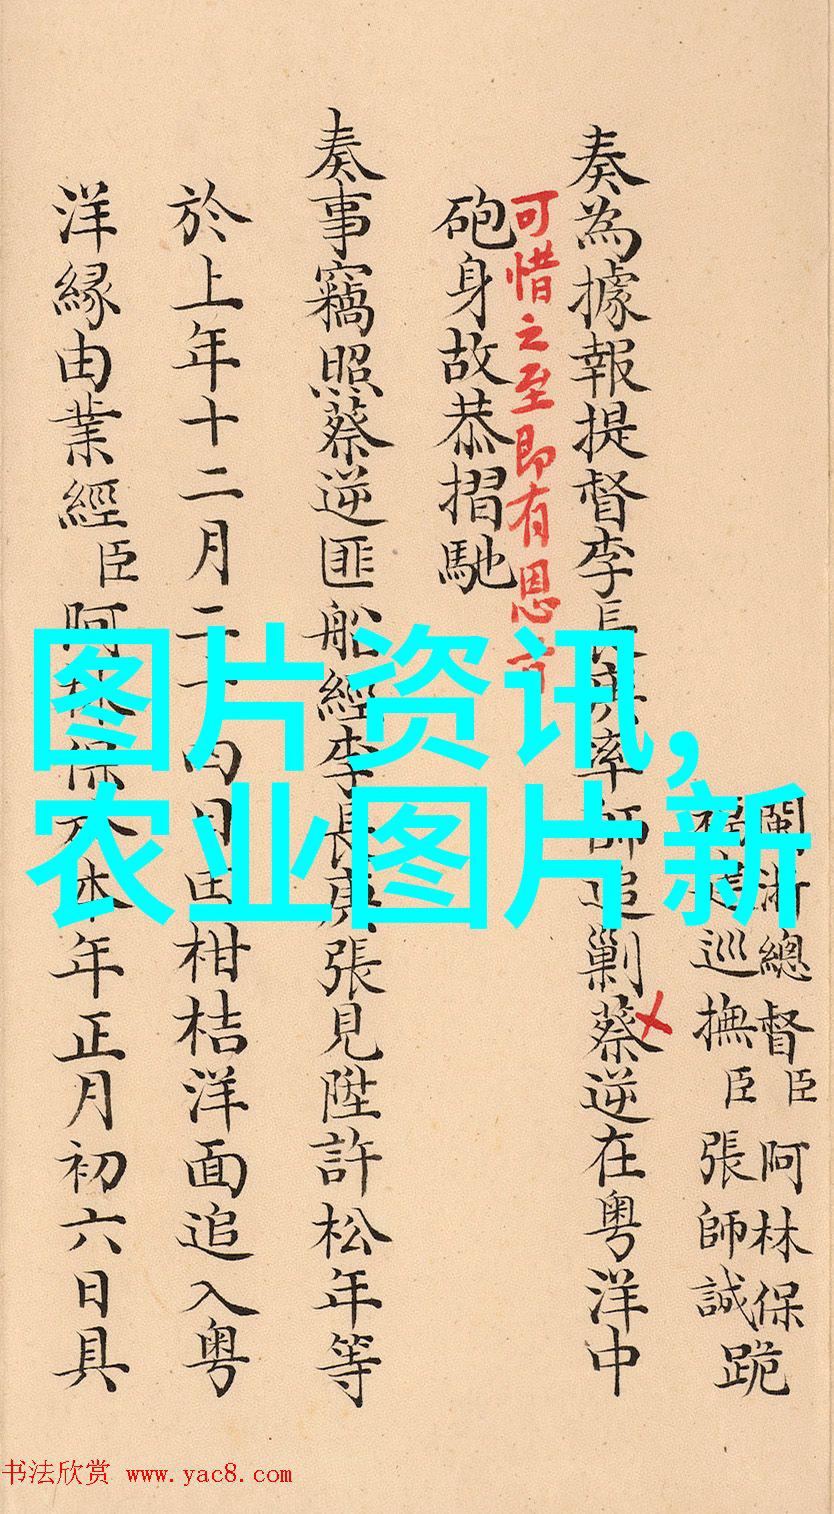 閩浙總督臣阿林保
福建巡撫臣張師誠跪
奏為據報提督李長庚率師追剿蔡逆在粤洋中
可惜之至即有恩
砲身故恭摺馳
奏事竊照蔡逆匪船經李長庚張見陞許松年等
於上年十二月二十四日由柑桔洋面追入粤
洋緣由業經臣阿林保於本年正月初六日具
图片资讯,
农业图片新
书法欣赏 www.yac8.com